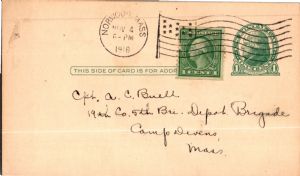 NORWOOD, MASS
NOV 4
6-PM
1918
THIS SIDE OF CARD IS FOR ADDRESS
1 CENT 1
Cpt. A. C. Buell
19th Co. 5th Bn. Depot Brigade
Camp Devens
Mass.